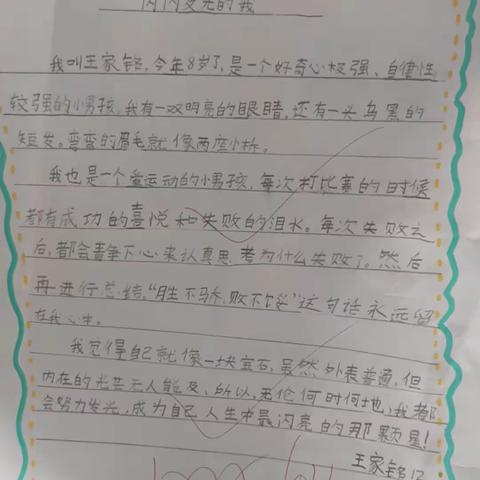 闪闪发光的我
我叫王家铭,今年8岁了,是一个好奇心极强、自律性
较强的小男孩,我有一双明亮的眼睛,还有一头乌黑的
短发。弯弯的眉毛就像两座小桥。
我也是一个爱运动的小男孩,每次打比赛的时候
都有成功的喜悦和失败的泪水。每次失败之
后,都会静下心来认真思考为什么失败了。然后
再进行总结,“胜不骄,败不馁”这句话永远留
在我心中。
我觉得自己就像一块宝石,虽然外表普通,但
内在的光芒无人能及、所以,无伦何时何地,我都
会努力发光,成为自己人生中最闪亮的那颗星!
王家铭